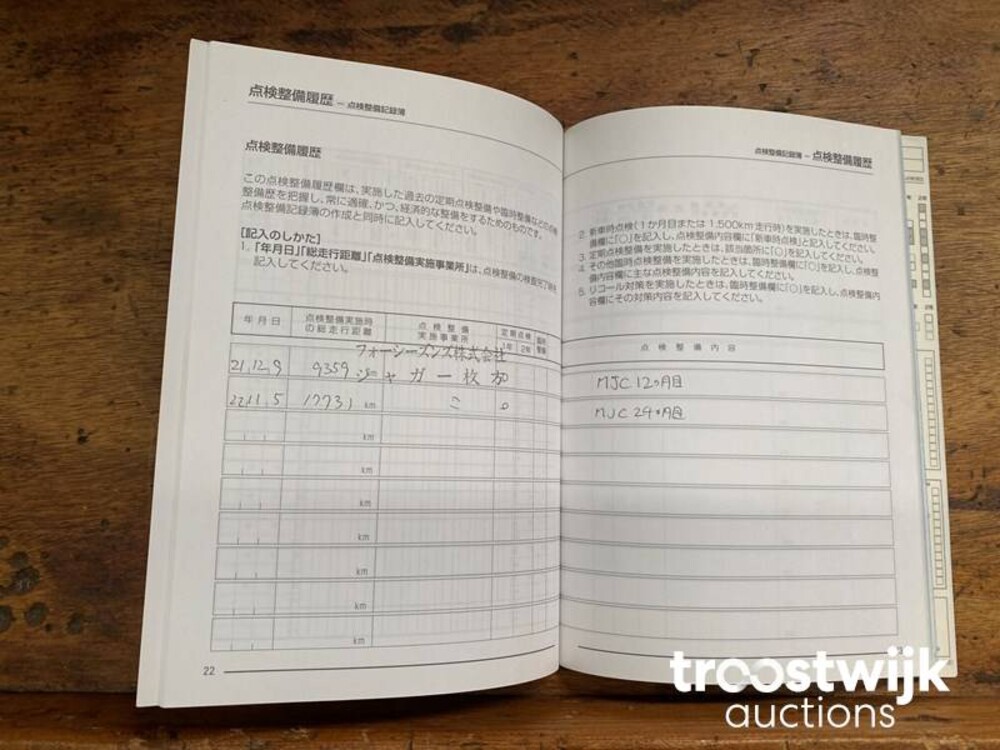 点検整備履歴 − 点検整備記録簿
点検整備履歴
この点検整備履歴欄は、実施した過去の定期点検整備や臨時整備などの点検
整備歴を把握し、常に適確、かつ、経済的な整備をするためのものです。
点検整備記録簿の作成と同時に記入してください。
[記入のしかた]
1. 「年月日」「総走行距離」「点検整備実施事業所」は、点検整備の検査完了時
記入してください。
年月日 点検整備実施時の総走行距離 点検整備実施事業所 定期点検 1年 2年 臨時整備
フォーシーズンズ株式会社
21.12.9 9359 ジャガー枚方
22.11.5 17731 km
km
km
km
km
km
km
km
22
点検整備記録簿 − 点検整備履歴
2. 新車時点検(1か月目または1,500km走行時)を実施したときは、臨時整
備欄に「○」を記入し、点検整備内容欄に「新車時点検」と記入してください。
3. 定期点検整備を実施したときは、該当箇所に「○」を記入してください。
4. その他臨時点検整備を実施したときは、臨時整備欄に「○」を記入し、点検整
備内容欄に主な点検整備内容を記入してください。
5. リコール対策を実施したときは、臨時整備欄に「○」を記入し、点検整備内
容欄にその対策内容を記入してください。
点検整備内容
MJC 12ヵ月目
MJC 24ヶ月目
troostwijk
auctions